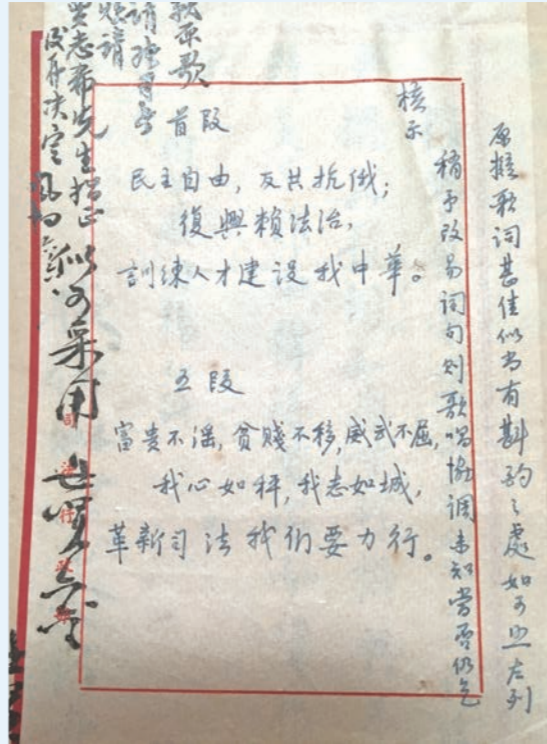 原擬歌詞甚佳似尚有斟酌之處如可照左列
稍予改易詞句則歌唱協調未知當否仍乞
核示
首段
民主自由，反共抗俄；
復興賴法治，
訓練人才建设我中華。
五段
富贵不淫，貧賤不移，威武不屈，
我心如秤，我志如城，
革新司法我们要力行。
歌
請
先生指正
似可采用
司法行政